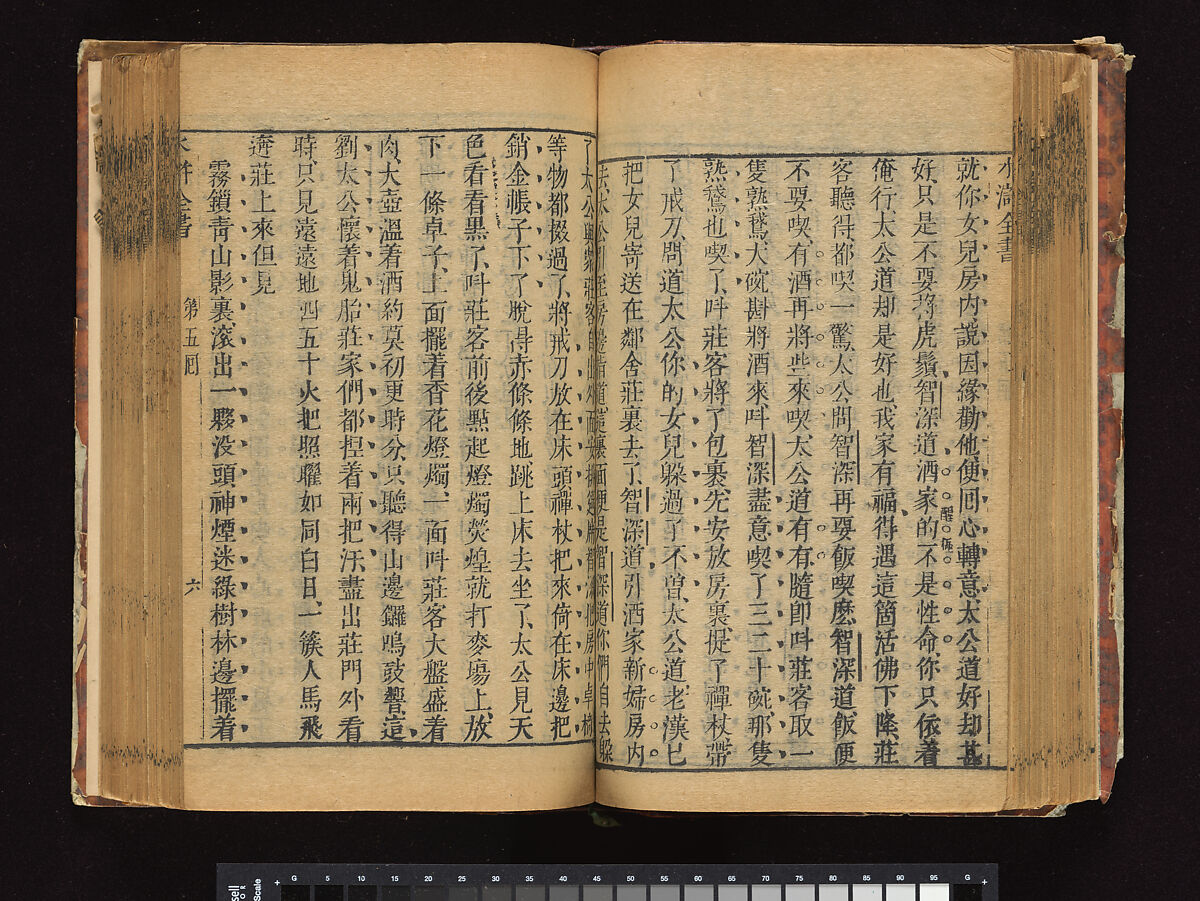 水滸全書
就你女兒房内說因緣勸他便囘心轉意太公道好却甚
好只是不要捋虎鬚智深道洒家的不是性命你只依着
俺行太公道却是好也我家有福得遇這箇活佛下降莊
客聽得都喫一驚太公問智深再要飯喫麽智深道飯便
不要喫有酒再將些來喫太公道有有隨卽呌莊客取一
隻熟鵞大碗斟將酒來呌智深盡意喫了三二十碗那隻
熟鵞也喫了呌莊客將了包裹先安放房裏提了禪杖帶
了戒刀問道太公你的女兒躲過了不曾太公道老漢已
把女兒寄送在鄰舍莊裏去了智深道引洒家新婦房内
去太公引至房邊指道這裏面便是智深道你們自去躲
了太公與衆莊客自出外面安排筵席智深把房中卓椅
等物都掇過了將戒刀放在床頭禪杖把來倚在床邊把
銷金帳子下了脫得赤條條地跳上床去坐了太公見天
色看看黒了呌莊客前後點起燈燭熒煌就打麥場上放
下一條卓子上面擺着香花燈燭一面呌莊客大盤盛着
肉大壺溫着酒約莫初更時分只聽得山邊鑼鳴鼓響這
劉太公懷着鬼胎莊家們都捏着兩把汗盡出莊門外看
時只見遠遠地四五十火把照曜如同白日一簇人馬飛
奔莊上來但見
霧鎖青山影裏滾出一夥没頭神煙迷綠樹林邊擺着
水滸全書
第五囘
六
G 5 10 20 30 40 50 60 70 80 90 95 G